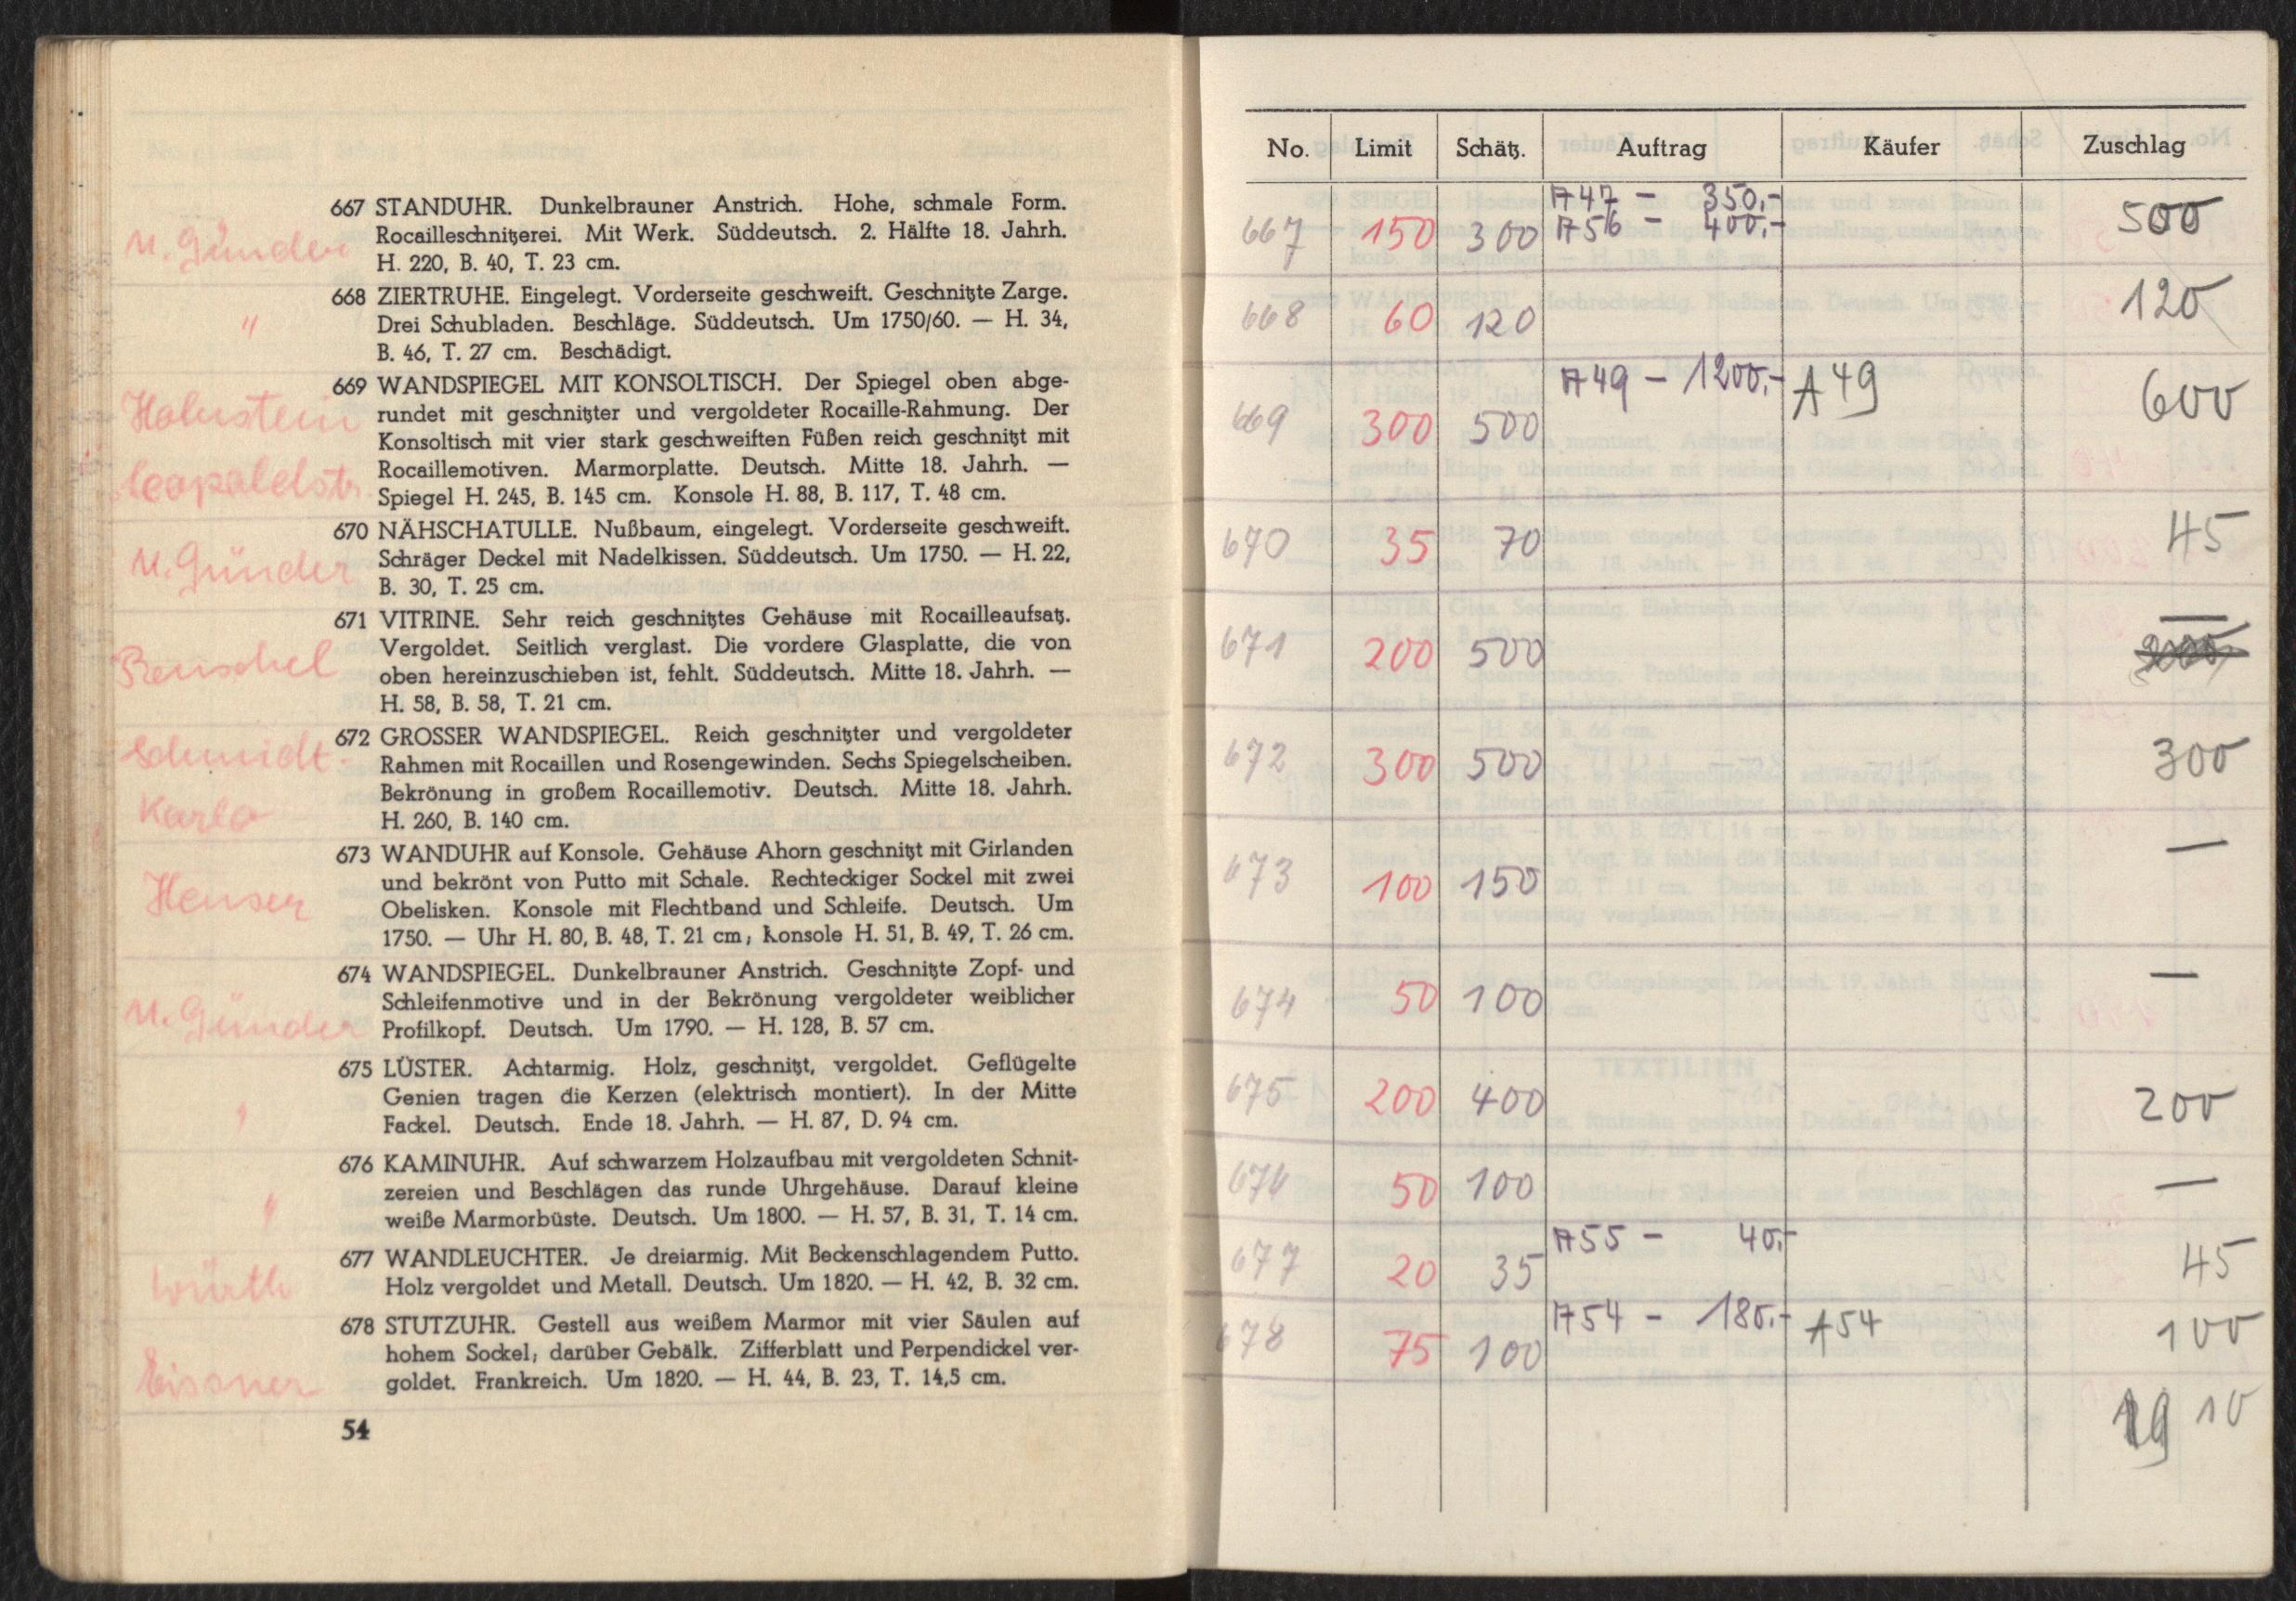 667 STANDUHR. Dunkelbrauner Anstrich. Hohe, schmale Form.
Rocailleschnitzerei. Mit Werk. Süddeutsch. 2. Hälfte 18. Jahrh.
H. 220, B. 40, T. 23 cm.
M. Günder
668 ZIERTRUHE. Eingelegt. Vorderseite geschweift. Geschnitzte Zarge.
Drei Schubladen. Beschläge. Süddeutsch. Um 1750/60. — H. 34,
B. 46, T. 27 cm. Beschädigt.
"
669 WANDSPIEGEL MIT KONSOLTISCH. Der Spiegel oben abge-
rundet mit geschnitzter und vergoldeter Rocaille-Rahmung. Der
Konsoltisch mit vier stark geschweiften Füßen reich geschnitzt mit
Rocaillemotiven. Marmorplatte. Deutsch. Mitte 18. Jahrh. —
Spiegel H. 245, B. 145 cm. Konsole H. 88, B. 117, T. 48 cm.
Leopoldstr.
670 NÄHSCHATULLE. Nußbaum, eingelegt. Vorderseite geschweift.
Schräger Deckel mit Nadelkissen. Süddeutsch. Um 1750. — H. 22,
B. 30, T. 25 cm.
M. Günder
671 VITRINE. Sehr reich geschnitztes Gehäuse mit Rocailleaufsatz.
Vergoldet. Seitlich verglast. Die vordere Glasplatte, die von
oben hereinzuschieben ist, fehlt. Süddeutsch. Mitte 18. Jahrh. —
H. 58, B. 58, T. 21 cm.
672 GROSSER WANDSPIEGEL. Reich geschnitzter und vergoldeter
Rahmen mit Rocaillen und Rosengewinden. Sechs Spiegelscheiben.
Bekrönung in großem Rocaillemotiv. Deutsch. Mitte 18. Jahrh.
H. 260, B. 140 cm.
Schmidt-
Karlo
673 WANDUHR auf Konsole. Gehäuse Ahorn geschnitzt mit Girlanden
und bekrönt von Putto mit Schale. Rechteckiger Sockel mit zwei
Obelisken. Konsole mit Flechtband und Schleife. Deutsch. Um
1750. — Uhr H. 80, B. 48, T. 21 cm; Konsole H. 51, B. 49, T. 26 cm.
Henser
674 WANDSPIEGEL. Dunkelbrauner Anstrich. Geschnitzte Zopf- und
Schleifenmotive und in der Bekrönung vergoldeter weiblicher
Profilkopf. Deutsch. Um 1790. — H. 128, B. 57 cm.
M. Günder
675 LÜSTER. Achtarmig. Holz, geschnitzt, vergoldet. Geflügelte
Genien tragen die Kerzen (elektrisch montiert). In der Mitte
Fackel. Deutsch. Ende 18. Jahrh. — H. 87, D. 94 cm.
"
676 KAMINUHR. Auf schwarzem Holzaufbau mit vergoldeten Schnit-
zereien und Beschlägen das runde Uhrgehäuse. Darauf kleine
weiße Marmorbüste. Deutsch. Um 1800. — H. 57, B. 31, T. 14 cm.
"
677 WANDLEUCHTER. Je dreiarmig. Mit Beckenschlagendem Putto.
Holz vergoldet und Metall. Deutsch. Um 1820. — H. 42, B. 32 cm.
Würth
678 STUTZUHR. Gestell aus weißem Marmor mit vier Säulen auf
hohem Sockel; darüber Gebälk. Zifferblatt und Perpendickel ver-
goldet. Frankreich. Um 1820. — H. 44, B. 23, T. 14,5 cm.
Eissner
54
No. Limit Schätz. Auftrag Käufer Zuschlag
A47 – 350,-
667 150 300 A56 – 400,- 500
668 60 120 120
669 300 500 A49 – 1200,- A49 600
670 35 70 45
671 200 500 —
672 300 500 300
673 100 150 —
674 50 100 —
675 200 400 200
676 50 100 —
677 20 35 A55 – 40,- 45
678 75 100 A54 – 180,- A54 100
1910